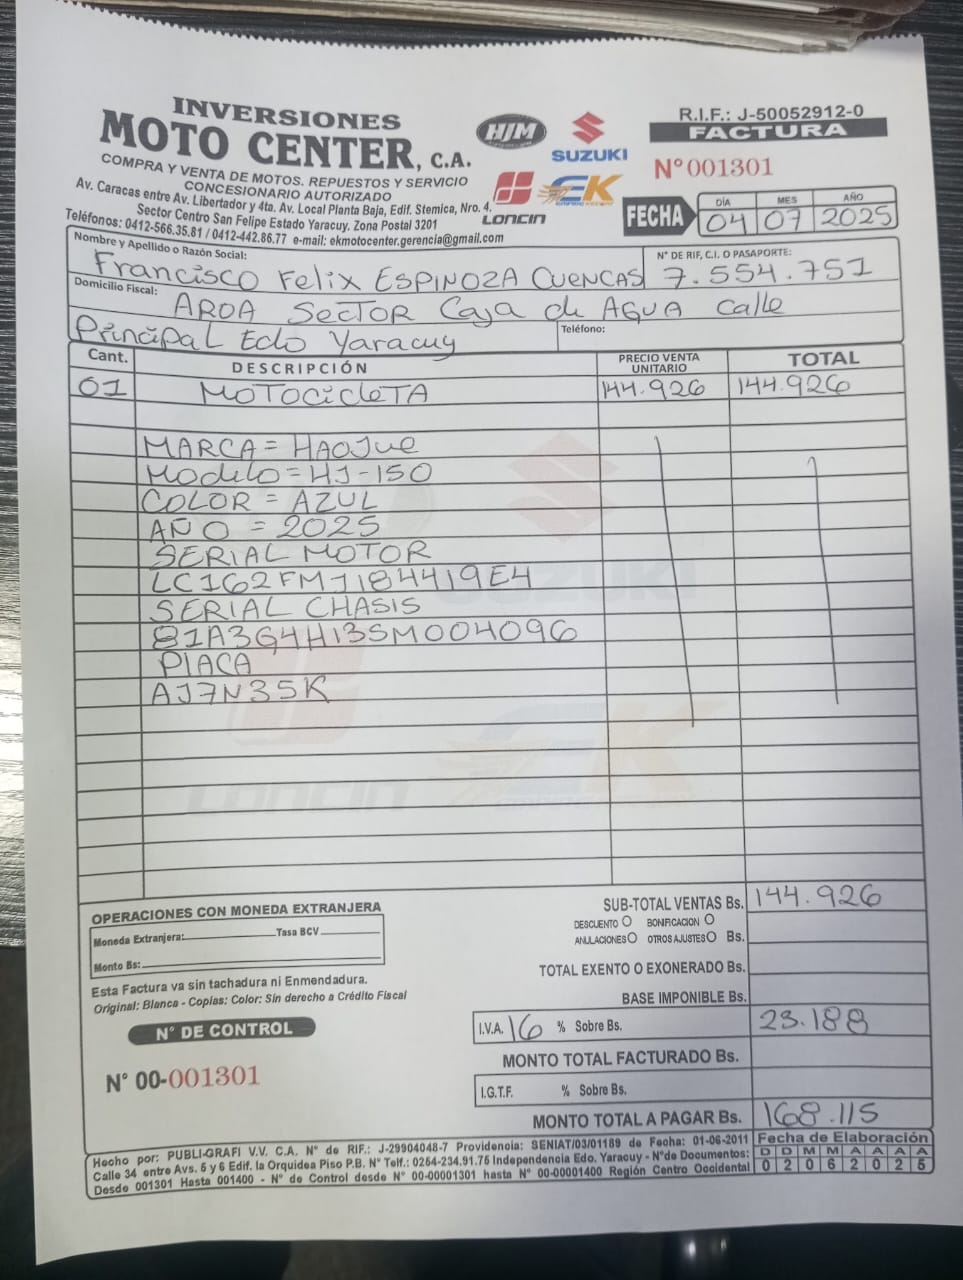 INVERSIONES
MOTO CENTER, C.A.
COMPRA Y VENTA DE MOTOS. REPUESTOS Y SERVICIO
CONCESIONARIO AUTORIZADO
Av. Caracas entre Av. Libertador y 4ta. Av. Local Planta Baja, Edif. Stemica, Nro. 4.
Sector Centro San Felipe Estado Yaracuy. Zona Postal 3201
Teléfonos: 0412-566.35.81 / 0412-442.86.77 e-mail: ekmotocenter.gerencia@gmail.com
HJM
SUZUKI
LONCIN
EK
R.I.F.: J-50052912-0
FACTURA
N° 001301
FECHA
DÍA MES AÑO
04 07 2025
Nombre y Apellido o Razón Social:
Francisco Felix ESPINOZA CUENCAS
N° DE RIF, C.I. O PASAPORTE:
7.554.751
Domicilio Fiscal:
AROA SECTOR Caja de AGUA Calle
Principal Edo Yaracuy
Teléfono:
Cant. DESCRIPCIÓN PRECIO VENTA UNITARIO TOTAL
01 MOTOCICLETA 144.926 144.926
MARCA = HAOJUE
Modelo = HJ-150
COLOR = AZUL
AÑO = 2025
SERIAL MOTOR
LC162FMJ184419E4
SERIAL CHASIS
81A3G4H13SM004096
PLACA
AJ7N35K
SUZUKI
LONCIN
EK
OPERACIONES CON MONEDA EXTRANJERA
Moneda Extranjera: Tasa BCV
Monto Bs:
Esta Factura va sin tachadura ni Enmendadura.
Original: Blanca - Copias: Color: Sin derecho a Crédito Fiscal
N° DE CONTROL
N° 00-001301
SUB-TOTAL VENTAS Bs. 144.926
DESCUENTO O BONIFICACION O
ANULACIONES O OTROS AJUSTES O Bs.
TOTAL EXENTO O EXONERADO Bs.
BASE IMPONIBLE Bs.
I.V.A. 16 % Sobre Bs. 23.188
MONTO TOTAL FACTURADO Bs.
I.G.T.F. % Sobre Bs.
MONTO TOTAL A PAGAR Bs. 168.115
Hecho por: PUBLI-GRAFI V.V. C.A. N° de RIF.: J-29904048-7 Providencia: SENIAT/03/01189 de Fecha: 01-06-2011
Calle 34 entre Avs. 5 y 6 Edif. la Orquidea Piso P.B. N° Telf.: 0254-234.91.75 Independencia Edo. Yaracuy - N°de Documentos:
Desde 001301 Hasta 001400 - N° de Control desde N° 00-00001301 hasta N° 00-00001400 Región Centro Occidental
Fecha de Elaboración
D D M M A A A A
0 2 0 6 2 0 2 5